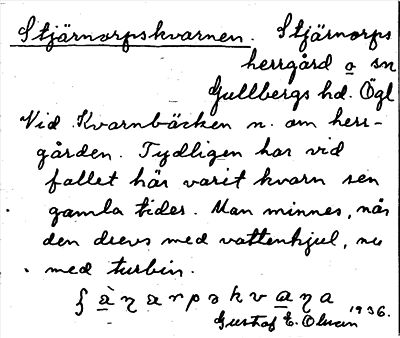 Stjärnorpskvarnen. Stjärnorps
herrgård o sn
Gullbergs hd. Ögl
Vid Kvarnbäcken n. om herr-
gården. Tydligen har vid
fallet här varit kvarn sen
gamla tider. Man minnes, när
den drevs med vattenhjul, nu
med turbin.
1936.
Gustaf E. Olsson